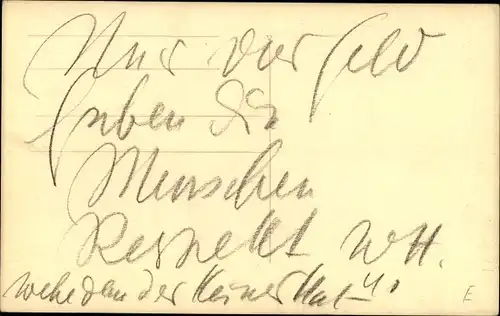 Nur vor Geld
haben die
Menschen
Respekt WH.
wehe dem der Keines Hat
E